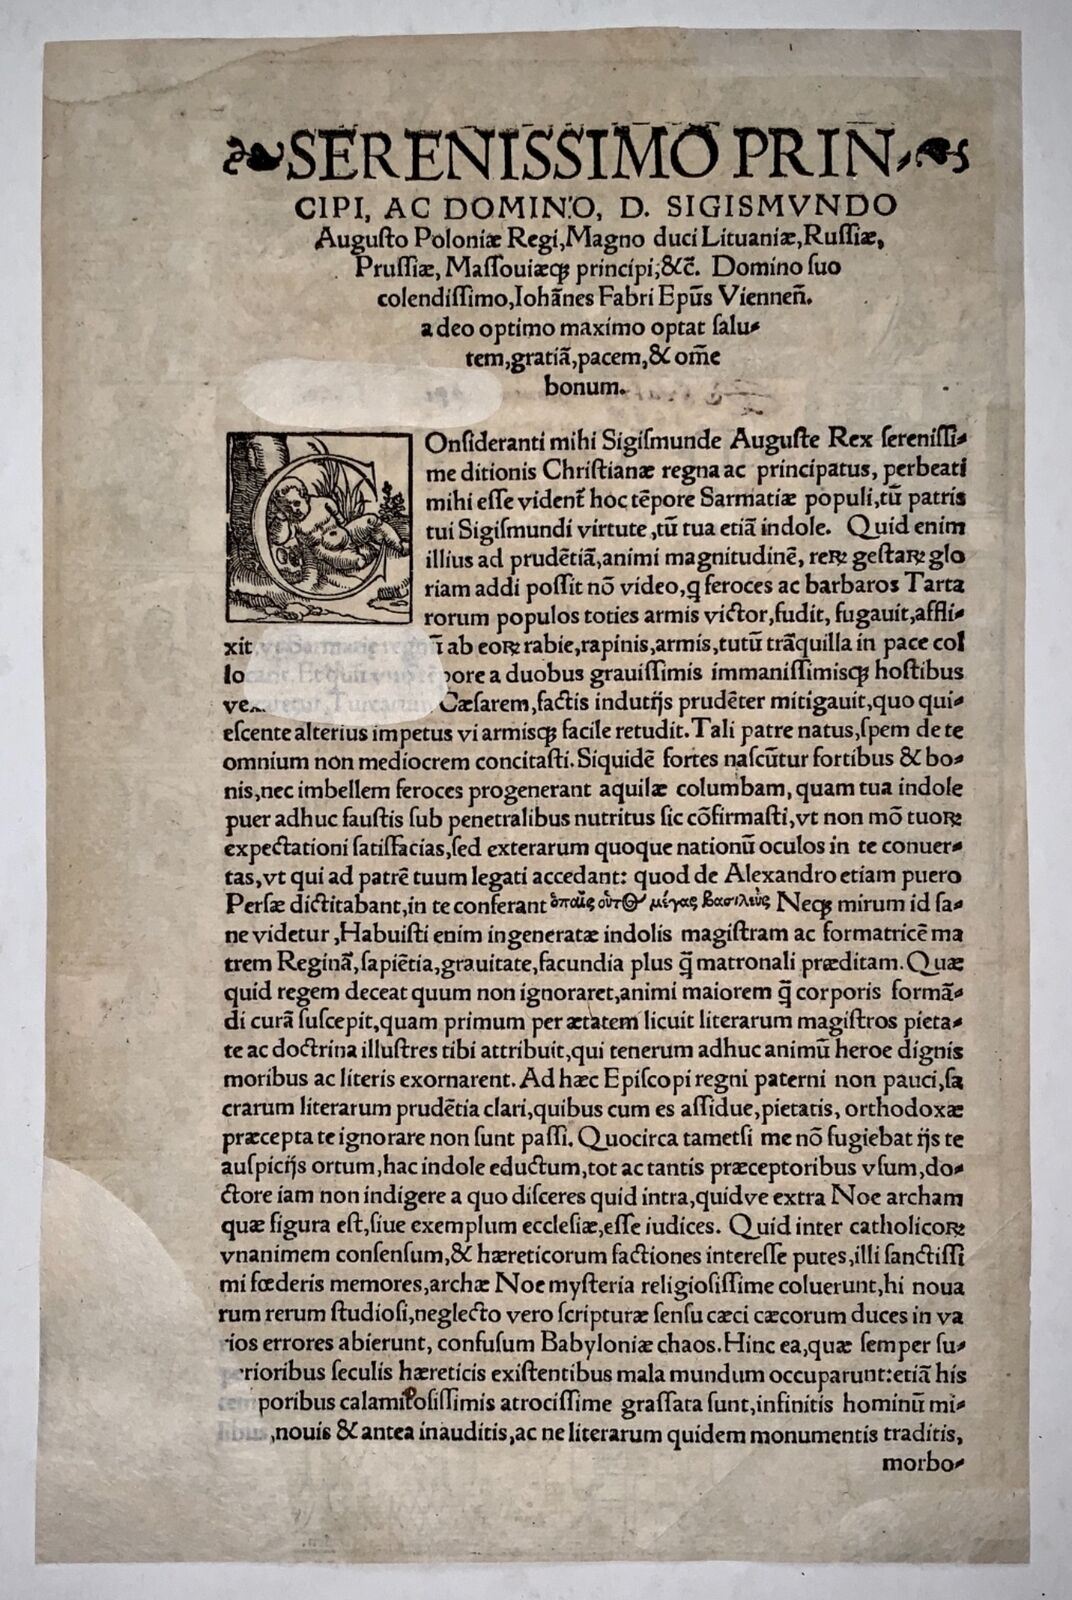 SERENISSIMO PRIN⸗
CIPI, AC DOMINO, D. SIGISMVNDO
Auguſto Poloniæ Regi, Magno duci Lituaniæ, Ruſſiæ,
Pruſſiæ, Maſſouiæq́ꝫ principi, &c̄. Domino ſuo
colendiſſimo, Iohãnes Fabri Ep̃us Vienneñ.
a deo optimo maximo optat ſalu⸗
tem, gratiã, pacem, & om̃e
bonum.
COnſideranti mihi Sigiſmunde Auguſte Rex ſereniſſi⸗
me ditionis Chriſtianæ regna ac principatus, perbeati
mihi eſſe vident̃ hoc tẽpore Sarmatiæ populi, tũ patris
tui Sigiſmundi virtute, tũ tua etiã indole. Quid enim
illius ad prudẽtiã, animi magnitudinẽ, rerꝝ geſtarꝝ glo
riam addi poſſit nõ video, q feroces ac barbaros Tarta
rorum populos toties armis victor, fudit, fugauit, affli⸗
xit, vt Sarmatie regnũ ab eorꝝ rabie, rapinis, armis, tutũ trãquilla in pace col
locarit. Et quũ vno tẽpore a duobus grauiſſimis immaniſſimisq́ꝫ hoſtibus
vexaretur, Turcarum Cæſarem, factis indutijs prudẽter mitigauit, quo qui⸗
eſcente alterius impetus vi armisq́ꝫ facile retudit. Tali patre natus, ſpem de te
omnium non mediocrem concitaſti. Siquidẽ fortes naſcũtur fortibus & bo⸗
nis, nec imbellem feroces progenerant aquilæ columbam, quam tua indole
puer adhuc fauſtis ſub penetralibus nutritus ſic cõfirmaſti, vt non mõ tuorꝝ
expectationi ſatiſfacias, ſed exterarum quoque nationũ oculos in te conuer⸗
tas, vt qui ad patrẽ tuum legati accedant: quod de Alexandro etiam puero
Perſæ dictitabant, in te conferant ὁ παῖς οὗτος μέγας βασιλεὺς Neq́ꝫ mirum id ſa⸗
ne videtur, Habuiſti enim ingeneratæ indolis magiſtram ac formatricẽ ma
trem Reginã, ſapiẽtia, grauitate, facundia plus q̃ matronali præditam. Quæ
quid regem deceat quum non ignoraret, animi maiorem q̃ corporis formã⸗
di curã ſuſcepit, quam primum per ætatem licuit literarum magiſtros pieta⸗
te ac doctrina illuſtres tibi attribuit, qui tenerum adhuc animũ heroe dignis
moribus ac literis exornarent. Ad hæc Epiſcopi regni paterni non pauci, ſa
crarum literarum prudẽtia clari, quibus cum es aſſidue, pietatis, orthodoxæ
præcepta te ignorare non ſunt paſſi. Quocirca tametſi me nõ fugiebat ijs te
auſpicijs ortum, hac indole eductum, tot ac tantis præceptoribus vſum, do⸗
ctore iam non indigere a quo diſceres quid intra, quidve extra Noe archam
quæ figura eſt, ſiue exemplum eccleſiæ, eſſe iudices. Quid inter catholicorꝝ
vnanimem conſenſum, & hæreticorum factiones intereſſe putes, illi ſanctiſſi
mi fœderis memores, archæ Noe myſteria religioſiſſime coluerunt, hi noua
rum rerum ſtudioſi, neglecto vero ſcripturæ ſenſu cæci cæcorum duces in va
rios errores abierunt, confuſum Babyloniæ chaos. Hinc ea, quæ ſemper ſu⸗
perioribus ſeculis hæreticis exiſtentibus mala mundum occuparunt: etiã his
temporibus calamitoſiſſimis atrociſſime graſſata ſunt, infinitis hominũ mi⸗
libus, nouis & antea inauditis, ac ne literarum quidem monumentis traditis,
morbo⸗